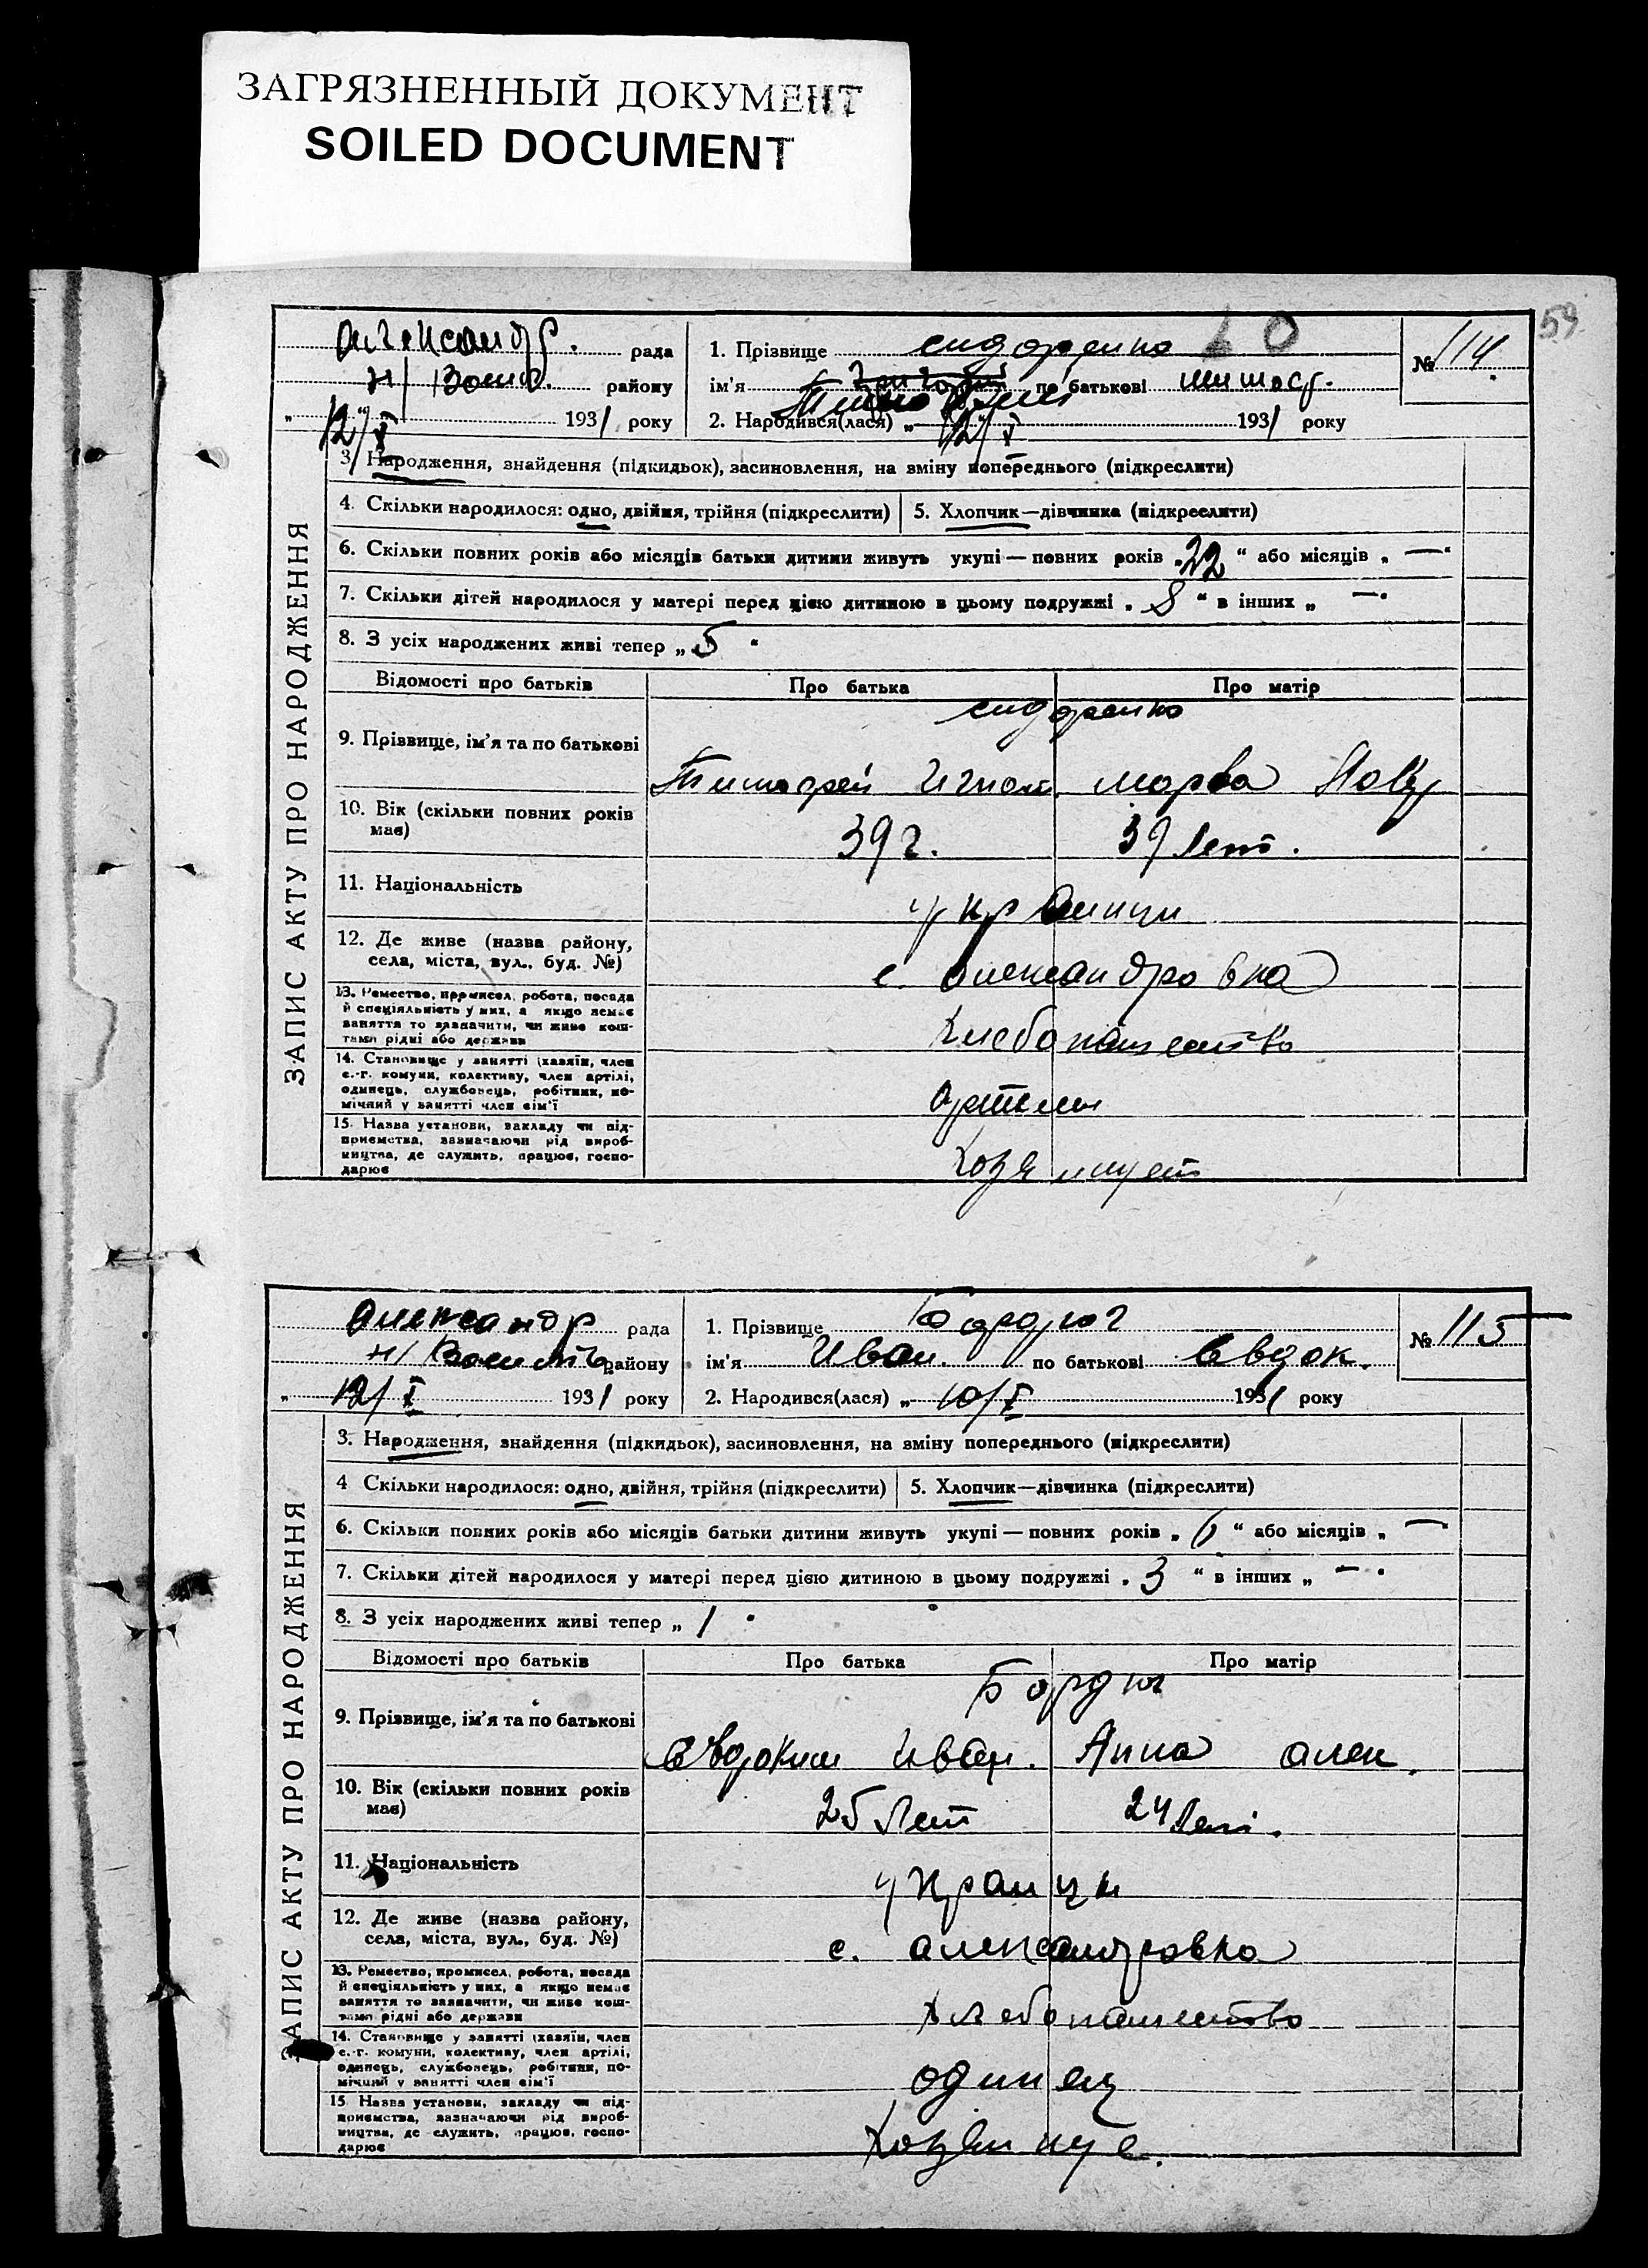 ЗАГРЯЗНЕННЫЙ ДОКУМЕНТ
SOILED DOCUMENT
59
ЗАПИС АКТУ ПРО НАРОДЖЕННЯ
Александр. рада
району
12/V 1931 року
1. Прізвище Сидоренко
ім'я по батькові Тимоф.
2. Народився(лася) „ 12/V 1931 року
№ 114.
3. Народження, знайдення (підкидьок), засиновлення, на зміну попереднього (підкреслити)
4. Скільки народилося: одно, двійня, трійня (підкреслити)
5. Хлопчик—дівчинка (підкреслити)
6. Скільки повних років або місяців батьки дитини живуть укупі — повних років „ 22 “ або місяців „ —
7. Скільки дітей народилося у матері перед цією дитиною в цьому подружжі „ 8 “ в інших „ —
8. З усіх народжених живі тепер „ 5 “
Відомості про батьків Про батька Про матір
Сидоренко
9. Прізвище, ім'я та по батькові
Тимофей Игнат. Марва
10. Вік (скільки повних років має)
39 г. 39 лет.
11. Національність
украинци
12. Де живе (назва району,
села, міста, вул., буд. №)
с. Александровка
13. Ремество, промисел, робота, посада
й спеціяльність у них, а якщо немає
заняття то зазначити, чи живе кош-
тами рідні або держави
Хлебопашество
14. Становище у занятті (хазяїн, член
с.-г. комуни, колективу, член артілі,
одинець, службовець, робітник, по-
мічний у занятті член сім'ї
артели
15. Назва установи, закладу чи під-
приємства, зазначаючи рід вироб-
ництва, де служить, працює, госпо-
дарює
ЗАПИС АКТУ ПРО НАРОДЖЕННЯ
Александр рада
району
12/V 1931 року
1. Прізвище Бордюг
ім'я Иван. по батькові Евдок.
2. Народився(лася) „ 10/V 1931 року
№ 115
3. Народження, знайдення (підкидьок), засиновлення, на зміну попереднього (підкреслити)
4 Скільки народилося: одно, двійня, трійня (підкреслити)
5. Хлопчик—дівчинка (підкреслити)
6. Скільки повних років або місяців батьки дитини живуть укупі — повних років „ 6 “ або місяців „ —
7. Скільки дітей народилося у матері перед цією дитиною в цьому подружжі „ 3 “ в інших „ —
8. З усіх народжених живі тепер „ 1 “
Відомості про батьків Про батька Про матір
Бордюг
9. Прізвище, ім'я та по батькові
Евдоким Иван. Анна Алек.
10. Вік (скільки повних років має)
25 лет 24 лет.
11. Національність
украинци
12. Де живе (назва району,
села, міста, вул., буд. №)
с. Александровка
13. Ремество, промисел, робота, посада
й спеціяльність у них, а якщо немає
заняття то зазначити, чи живе кош-
тами рідні або держави
Хлебопашество
14. Становище у занятті (хазяїн, член
с.-г. комуни, колективу, член артілі,
одинець, службовець, робітник, по-
мічний у занятті член сім'ї
одинец
15 Назва установи, закладу чи під-
приємства, зазначаючи рід вироб-
ництва, де служить, працює, госпо-
дарює